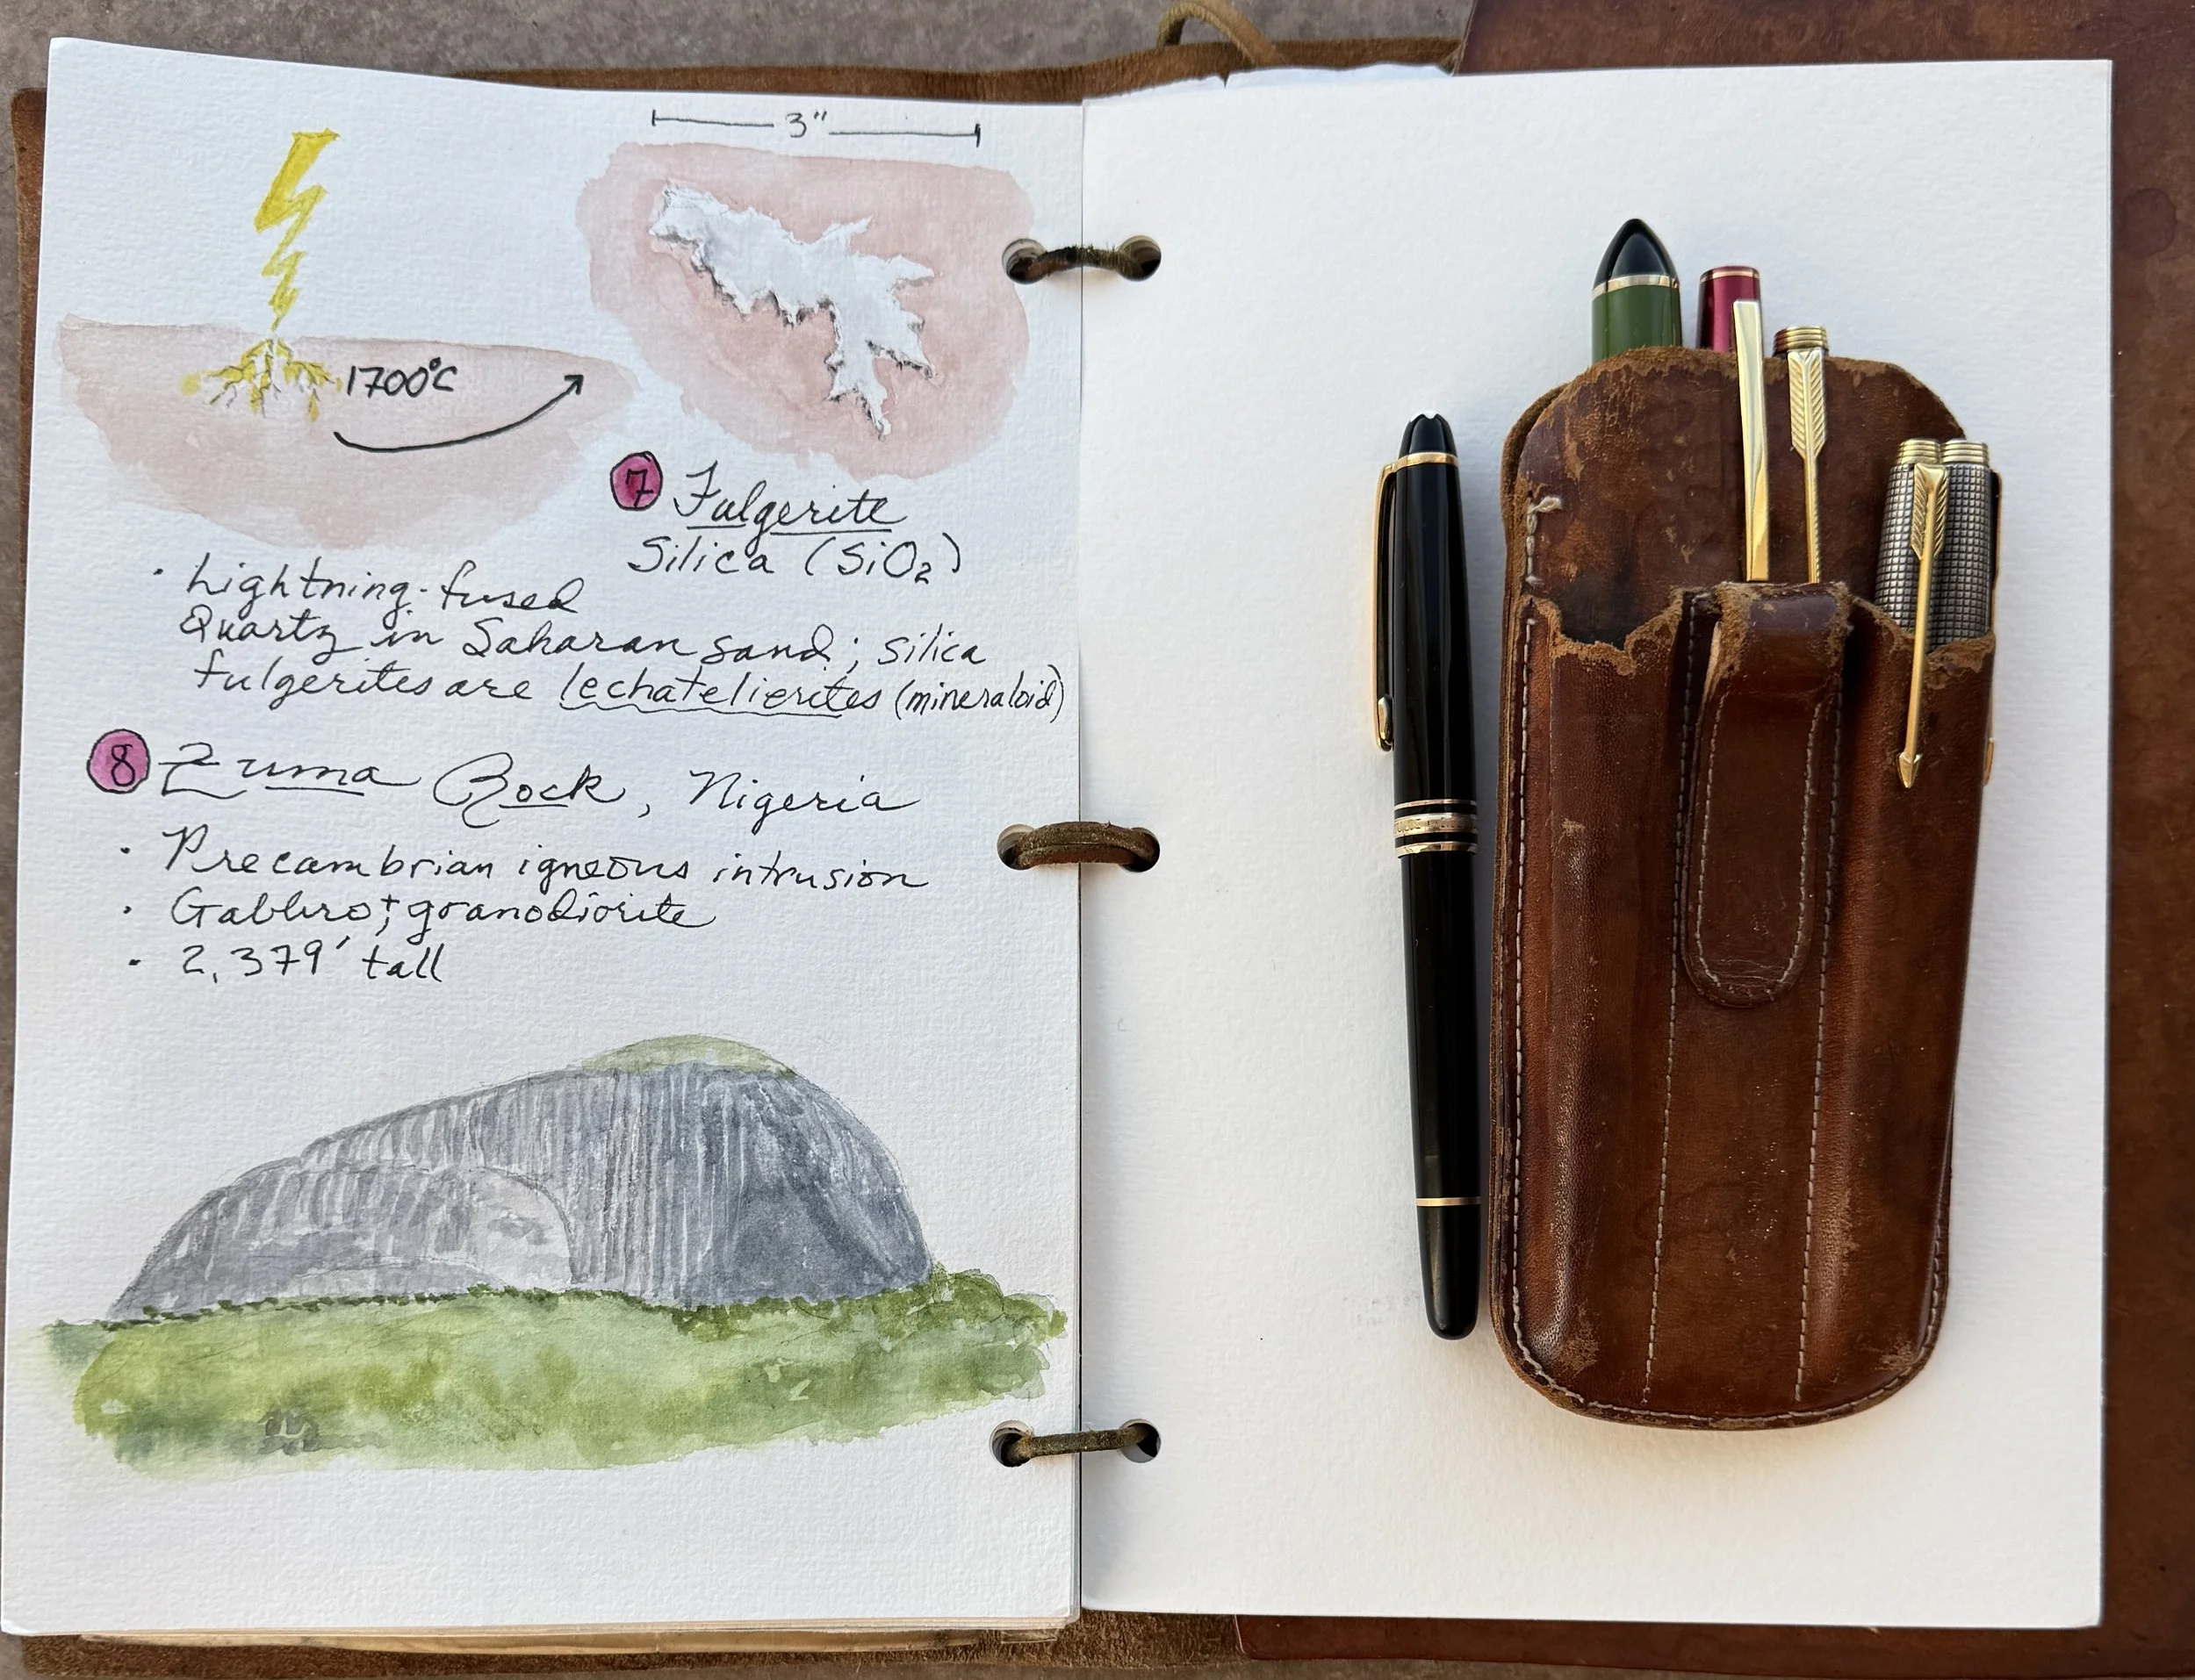 3"
1700°C
7 Fulgerite
Silica (SiO₂)
· Lightning-fused
Quartz in Saharan sand; silica
fulgerites are lechatelierites (mineraloid)
8 Zuma Rock, Nigeria
· Precambrian igneous intrusion
· Gabbro + granodiorite
· 2,379' tall